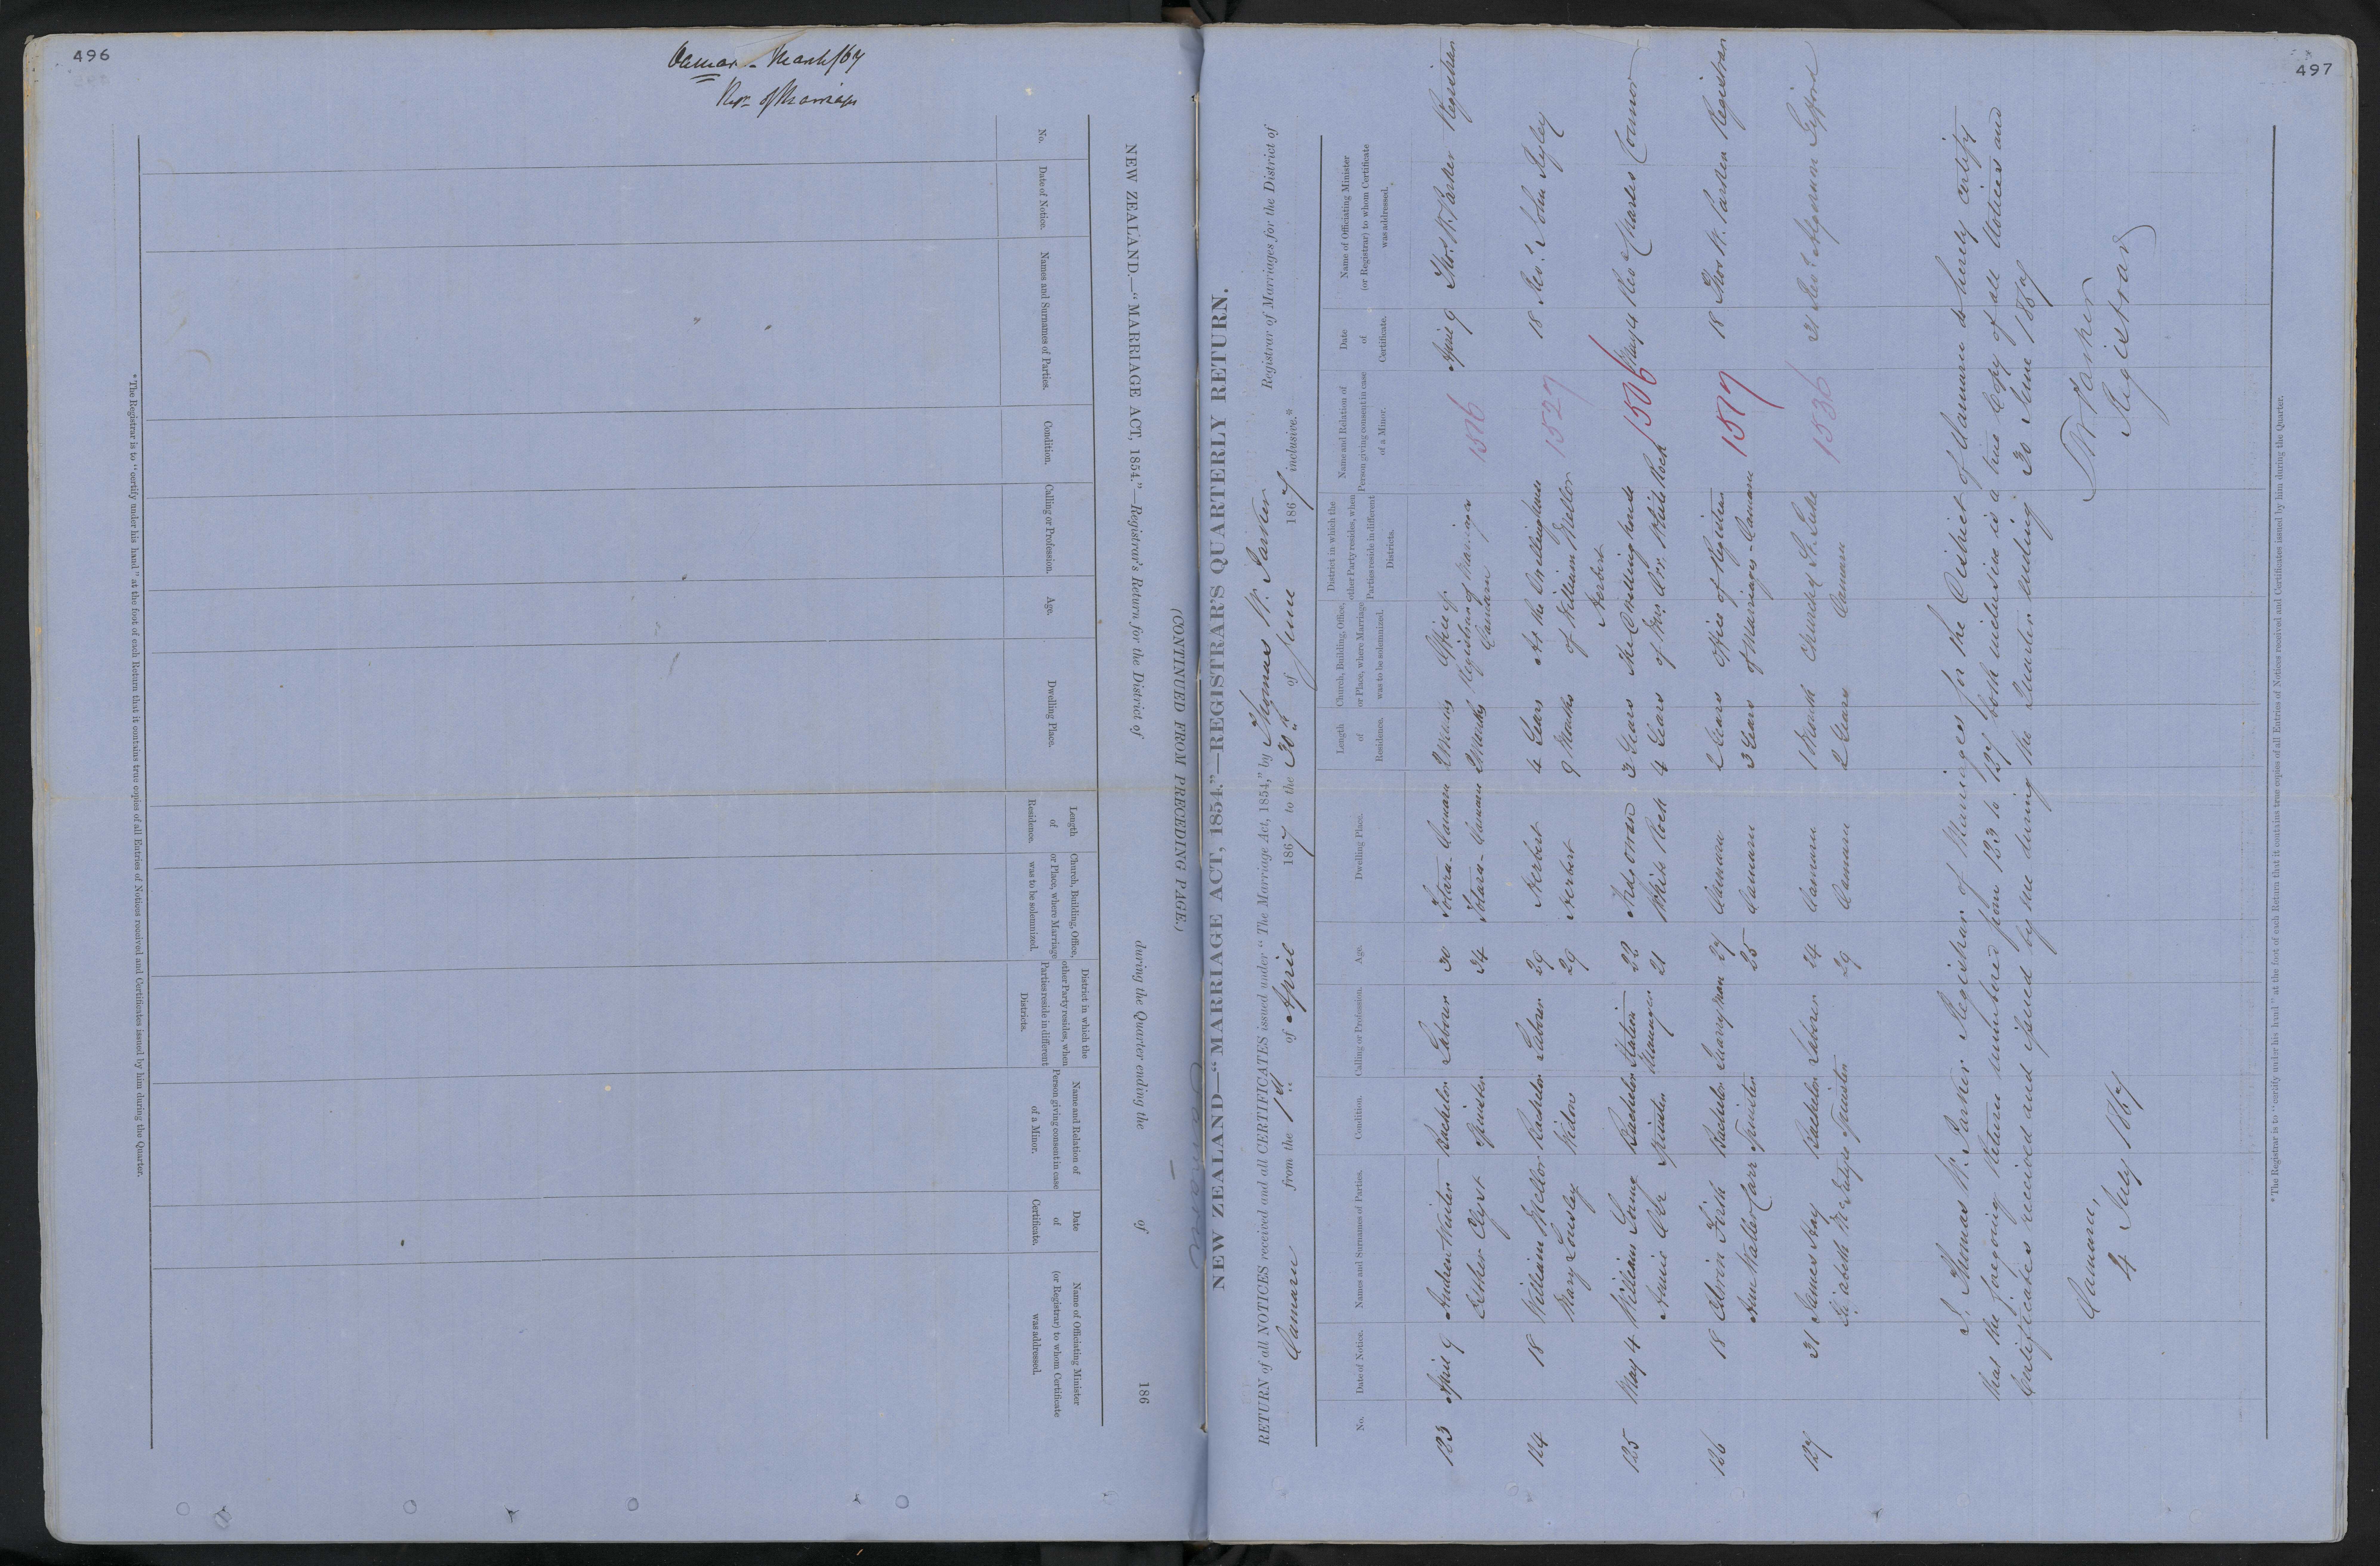 496
Oamaru - March/67
Rn. of Marriages
NEW ZEALAND.—“MARRIAGE ACT, 1854.”—Registrar's Return for the District of during the Quarter ending the of 186
(CONTINUED FROM PRECEDING PAGE.)
No.
Date of Notice.
Names and Surnames of Parties.
Condition.
Calling or Profession.
Age.
Dwelling Place.
Length of Residence.
Church, Building, Office, or Place, where Marriage was to be solemnized.
District in which the other Party resides, when Parties reside in different Districts.
Name and Relation of Person giving consent in case of a Minor.
Date of Certificate.
Name of Officiating Minister (or Registrar) to whom Certificate was addressed.
* The Registrar is to “certify under his hand” at the foot of each Return that it contains true copies of all Entries of Notices received and Certificates issued by him during the Quarter.
497
Oamaru
NEW ZEALAND—“MARRIAGE ACT, 1854.”—REGISTRAR'S QUARTERLY RETURN.
RETURN of all NOTICES received and all CERTIFICATES issued under “The Marriage Act, 1854,” by Thomas W. Parker Registrar of Marriages for the District of
Oamaru from the 1st of April 1867 to the 30th of June 1867 inclusive.*
No.
Date of Notice.
Names and Surnames of Parties.
Condition.
Calling or Profession.
Age.
Dwelling Place.
Length of Residence.
Church, Building, Office, or Place, where Marriage was to be solemnized.
District in which the other Party resides, when Parties reside in different Districts.
Name and Relation of Person giving consent in case of a Minor.
Date of Certificate.
Name of Officiating Minister (or Registrar) to whom Certificate was addressed.
123 April 9 Andrew Bachelor Labourer 30 Totara - Oamaru 2 Office of 1516 April 9 Thos. W. Parker Registrar
Esther Clyst Spinster 34 Totara - Oamaru Registrar of Marriages
Oamaru
124 18 William Mellor Bachelor Labourer 29 Herbert 4 Years At the Dwellinghouse 1527 18 Rev. John Ryley
Mary Lousley Widow 29 Herbert 9 Months of William Mellor
Herbert
125 May 4 William Bachelor Station Manager 22 3 Years The Dwelling house 1506 May 4 Rev. Charles Connor
Annie Orr Spinster 21 White Rock 4 Years of Mr. Orr, White Rock
126 18 Edwin Firth Bachelor Quarryman 27 Oamaru 2 Years Office of Registrar 1517 18 Thos W. Parker Registrar
Ann Walter Carr Spinster 25 Oamaru 3 Years of Marriages - Oamaru
127 31 James Hay Bachelor Labourer 24 Oamaru 1 Month Church of St. Luke 1536 31 Rev. Algernon Gifford
Elizabeth McIntyre Spinster 29 Oamaru 2 Years Oamaru
I, Thomas W. Parker Registrar of Marriages for the District of Oamaru do hereby certify
that the foregoing Return numbered from 123 to 127 both inclusive is a true Copy of all Notices and
Certificates received and issued by me during the Quarter ending 30 June 1867
Oamaru,
4 July 1867
TW Parker
Registrar
* The Registrar is to “certify under his hand” at the foot of each Return that it contains true copies of all Entries of Notices received and Certificates issued by him during the Quarter.